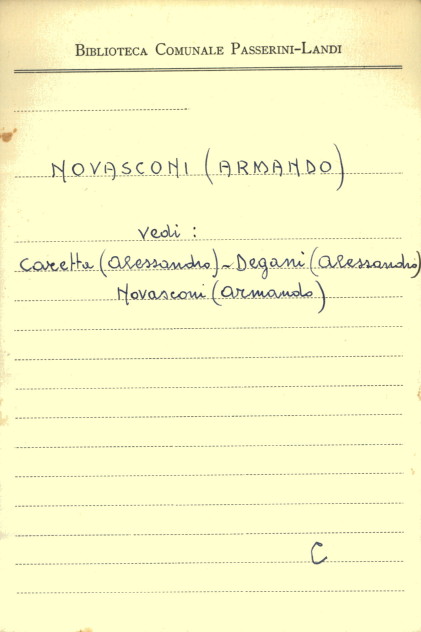 Biblioteca Comunale Passerini-Landi
NOVASCONI (ARMANDO)
vedi :
Caretta (Alessandro) - Degani (Alessandro)
Novasconi (Armando)
C